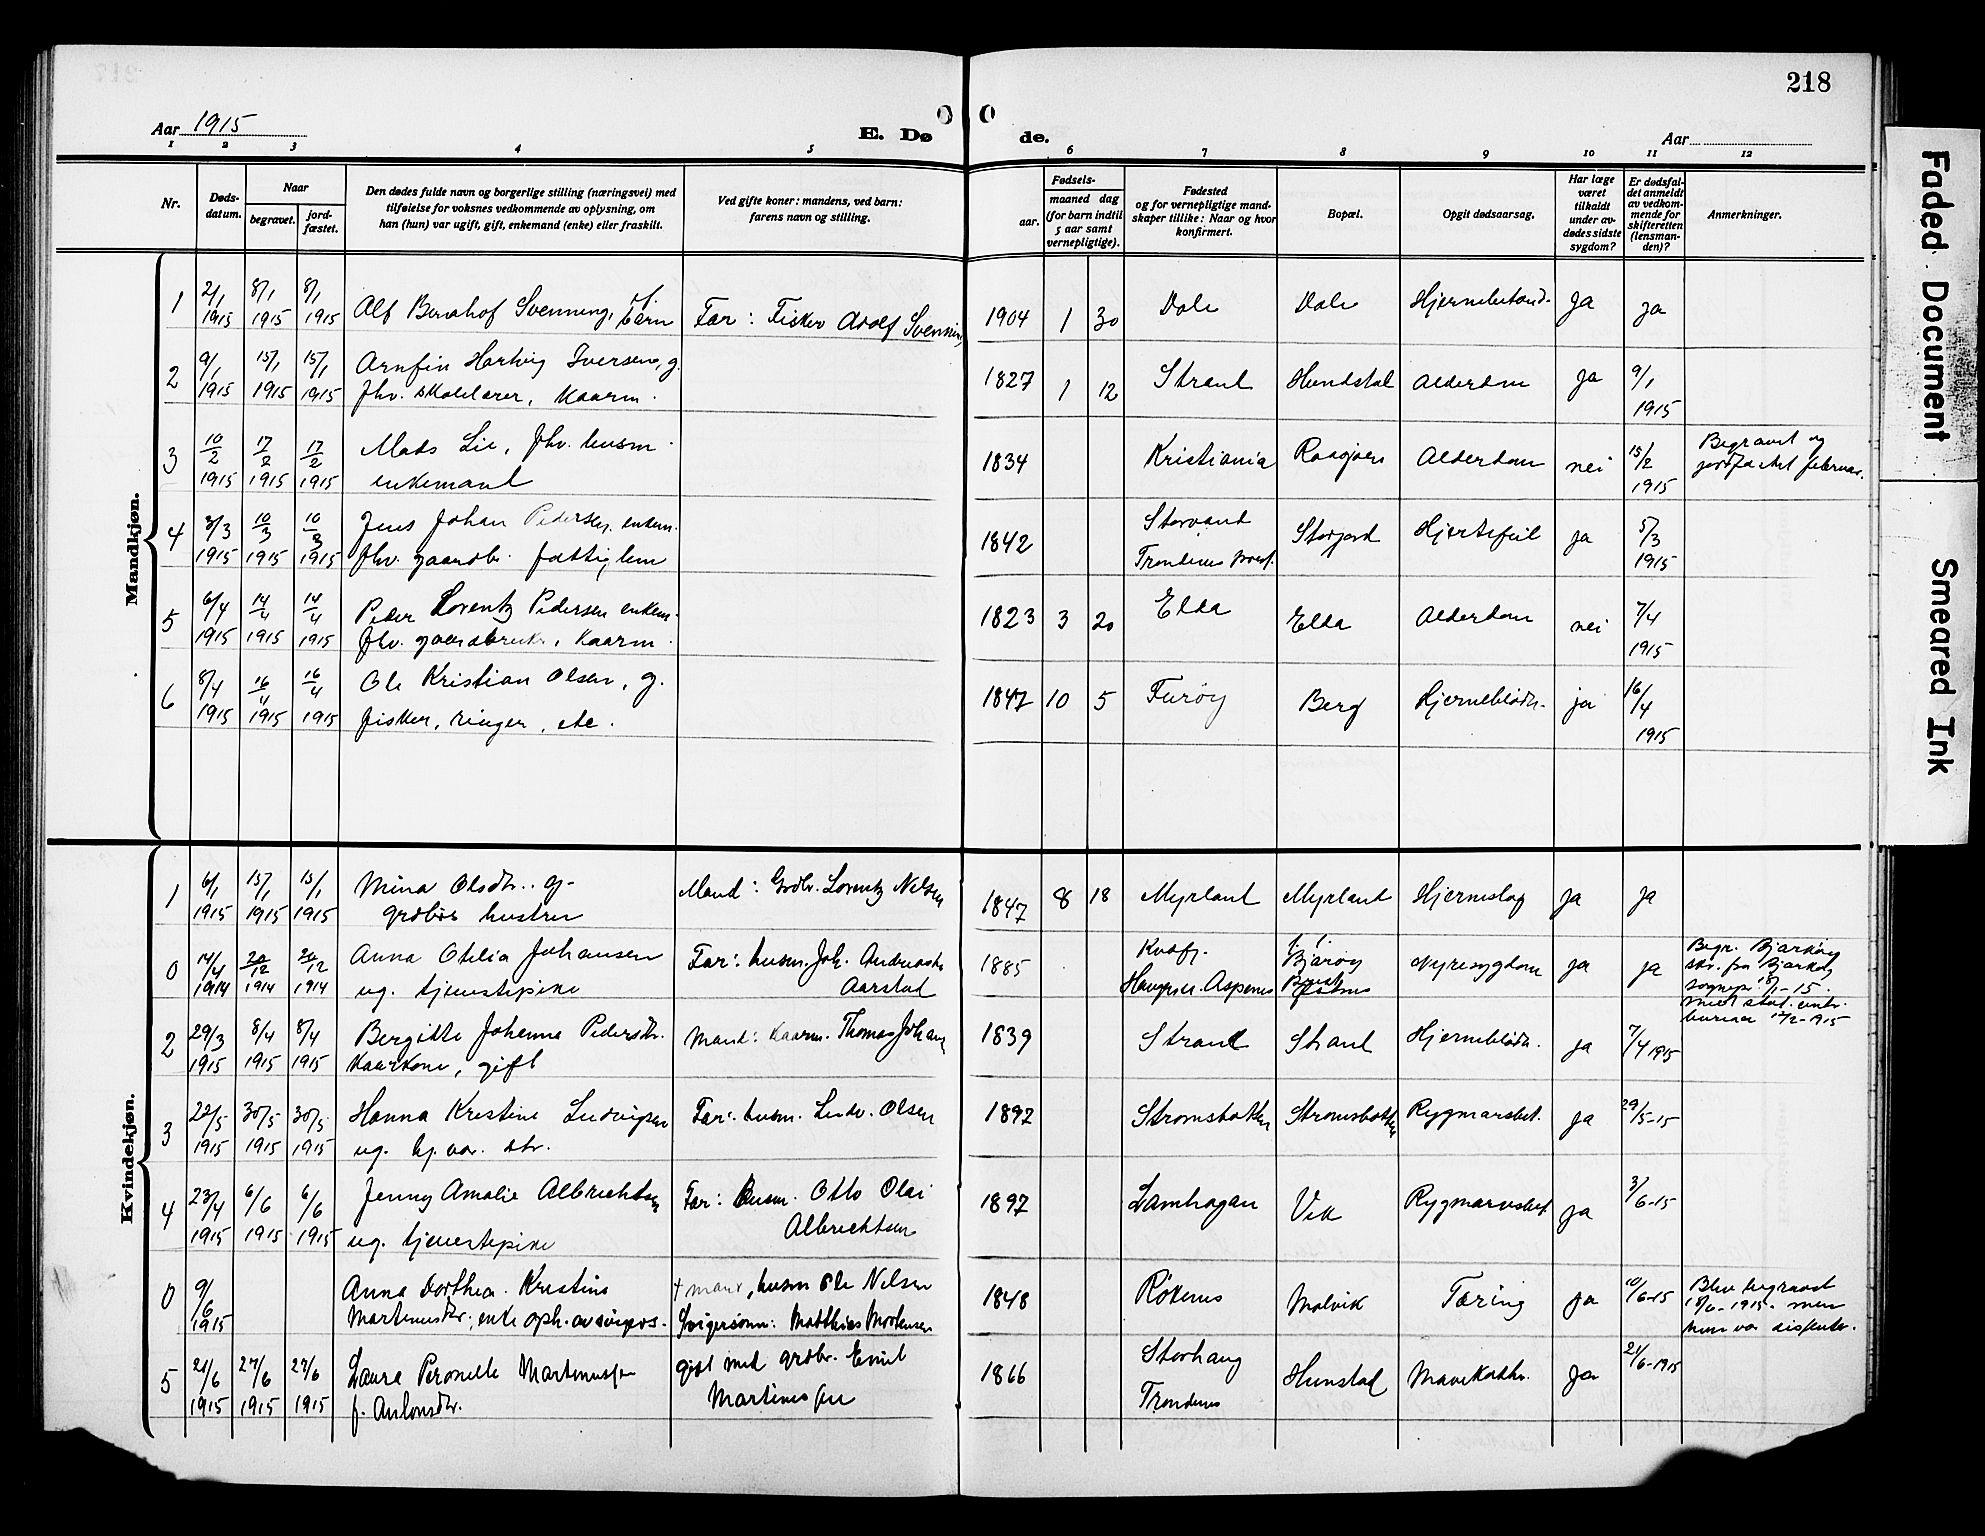 218
Aar 1915
E. Dø
de.
Aar
1 2 3 4 5 6 7 8 9 10 11 12
Nr.
Døds-
datum.
Naar
begravet.
jord-
fæstet.
Den dødes fulde navn og borgerlige stilling (næringsvei) med
tilføielse for voksnes vedkommende av oplysning, om
han (hun) var ugift, gift, enkemand (enke) eller fraskilt.
Ved gifte koner: mandens, ved barn:
farens navn og stilling.
Fødsels-
aar.
maaned dag
(for barn indtil
5 aar samt
vernepligtige).
Fødested
og for vernepligtige mand-
skaper tillike: Naar og hvor
konfirmert.
Bopæl.
Opgit dødsaarsag.
Har læge
været
tilkaldt
under av-
dødes sidste
sygdom?
Er dødsfal-
det anmeldt
av vedkom-
mende for
skifteretten
(lensman-
den)?
Anmerkninger.
Mandkjøn.
1 2/1 1915 8/1 1915 8/1 1915 Alf Bernhof Svenning, barn Far: Fisker Adolf Svenning 1904 1 30 Dale Dale ja ja
2 9/1 1915 15/1 1915 15/1 1915 Arnfin Hartvig Iversen, g. 1827 1 12 Strand Hundstad Alderdom ja 9/1 1915
fhv. skolelærer, kaarm.
3 10/2 1915 17/2 1915 17/2 1915 Mads Lie, fhv. husm. 1834 Kristiania Alderdom nei 15/2 1915 Begravet og
enkemand jordfæstet februar.
4 3/3 1915 10/3 1915 10/3 1915 Jens Johan Pedersen, enkem. 1842 Storvand Storjord Hjertefeil ja 5/3 1915
fhv. gaardbr. fattiglem Trondenes
5 6/4 1915 14/4 1915 14/4 1915 Peder Lorentz Pedersen enkem. 1823 3 20 Elda Elda Alderdom nei 7/4 1915
fhv. gaardbruker, kaarm.
6 8/4 1915 16/4 1915 16/4 1915 Ole Kristian Olsen, g. 1847 10 5 Furøy Berg Hjerneblødn. ja 16/4 1915
fisker, ringer, etc.
Kvindekjøn.
1 6/1 1915 15/1 1915 15/1 1915 Mina Olsdtr. g. Mand: Grdbr. Lorentz Nilsen 1847 8 18 Myrland Myrland Hjerneslag ja ja
grdbrs hustru
0 14/4 1914 20/12 1914 20/12 1914 Anna Otelia Johansen Far: husm. Joh. Andreas 1885 Kvæfj. Bjarøy Nyresygdom ja ja Begr. Bjarkøy
ug. tjenestepike Aarstad Aspenes skr. fra Bjarkøy
sognepr. 18/1-15.
17/2-1915
2 29/3 1915 8/4 1915 8/4 1915 Bergitte Johanna Pedersdtr. Mand: kaarm. Thomas Johan 1839 Strand Strand Hjerneblødn. ja 7/4 1915
kaarkone, gift
3 22/5 1915 30/5 1915 30/5 1915 Hanna Kristine Ludvigsen Far: husm. Ludv. Olsen 1897 Strømsbotten Strømsbotten Rygmarsbet. ja 29/5-15
ug. hj.vær. dtr.
4 23/4 1915 6/6 1915 6/6 1915 Jenny Amalie Albrechtsen Far: husm. Otto Olai 1897 Lamhagan Vik Rygmarvsbet ja 3/6-15
ug. tjenestepike Albrechtsen
0 9/6 1915 Anna Dorthea Kristine † mand, husm Ole Nilsen 1848 Røkenes Molvik Tæring ja 10/6-15 Blev begravet
Martinusdtr., enke Svigersønn: Matthias Mortensen 1915. men
hun var dissenter.
5 21/6 1915 27/6 1915 27/6 1915 Laura Peronelle Martinussen gift med grdbr. Emil 1866 Storhaug Hunstad Mavekatarr. ja 21/6-1915
f. Antonsdtr. Martinussen Trondenes
Faded Document
Smeared Ink